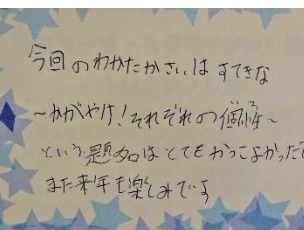 今回のわかたかさいは すてきな
～かがやけ!それぞれの個性～
という題名はとてもかっこよかったで
また来年も楽しみです